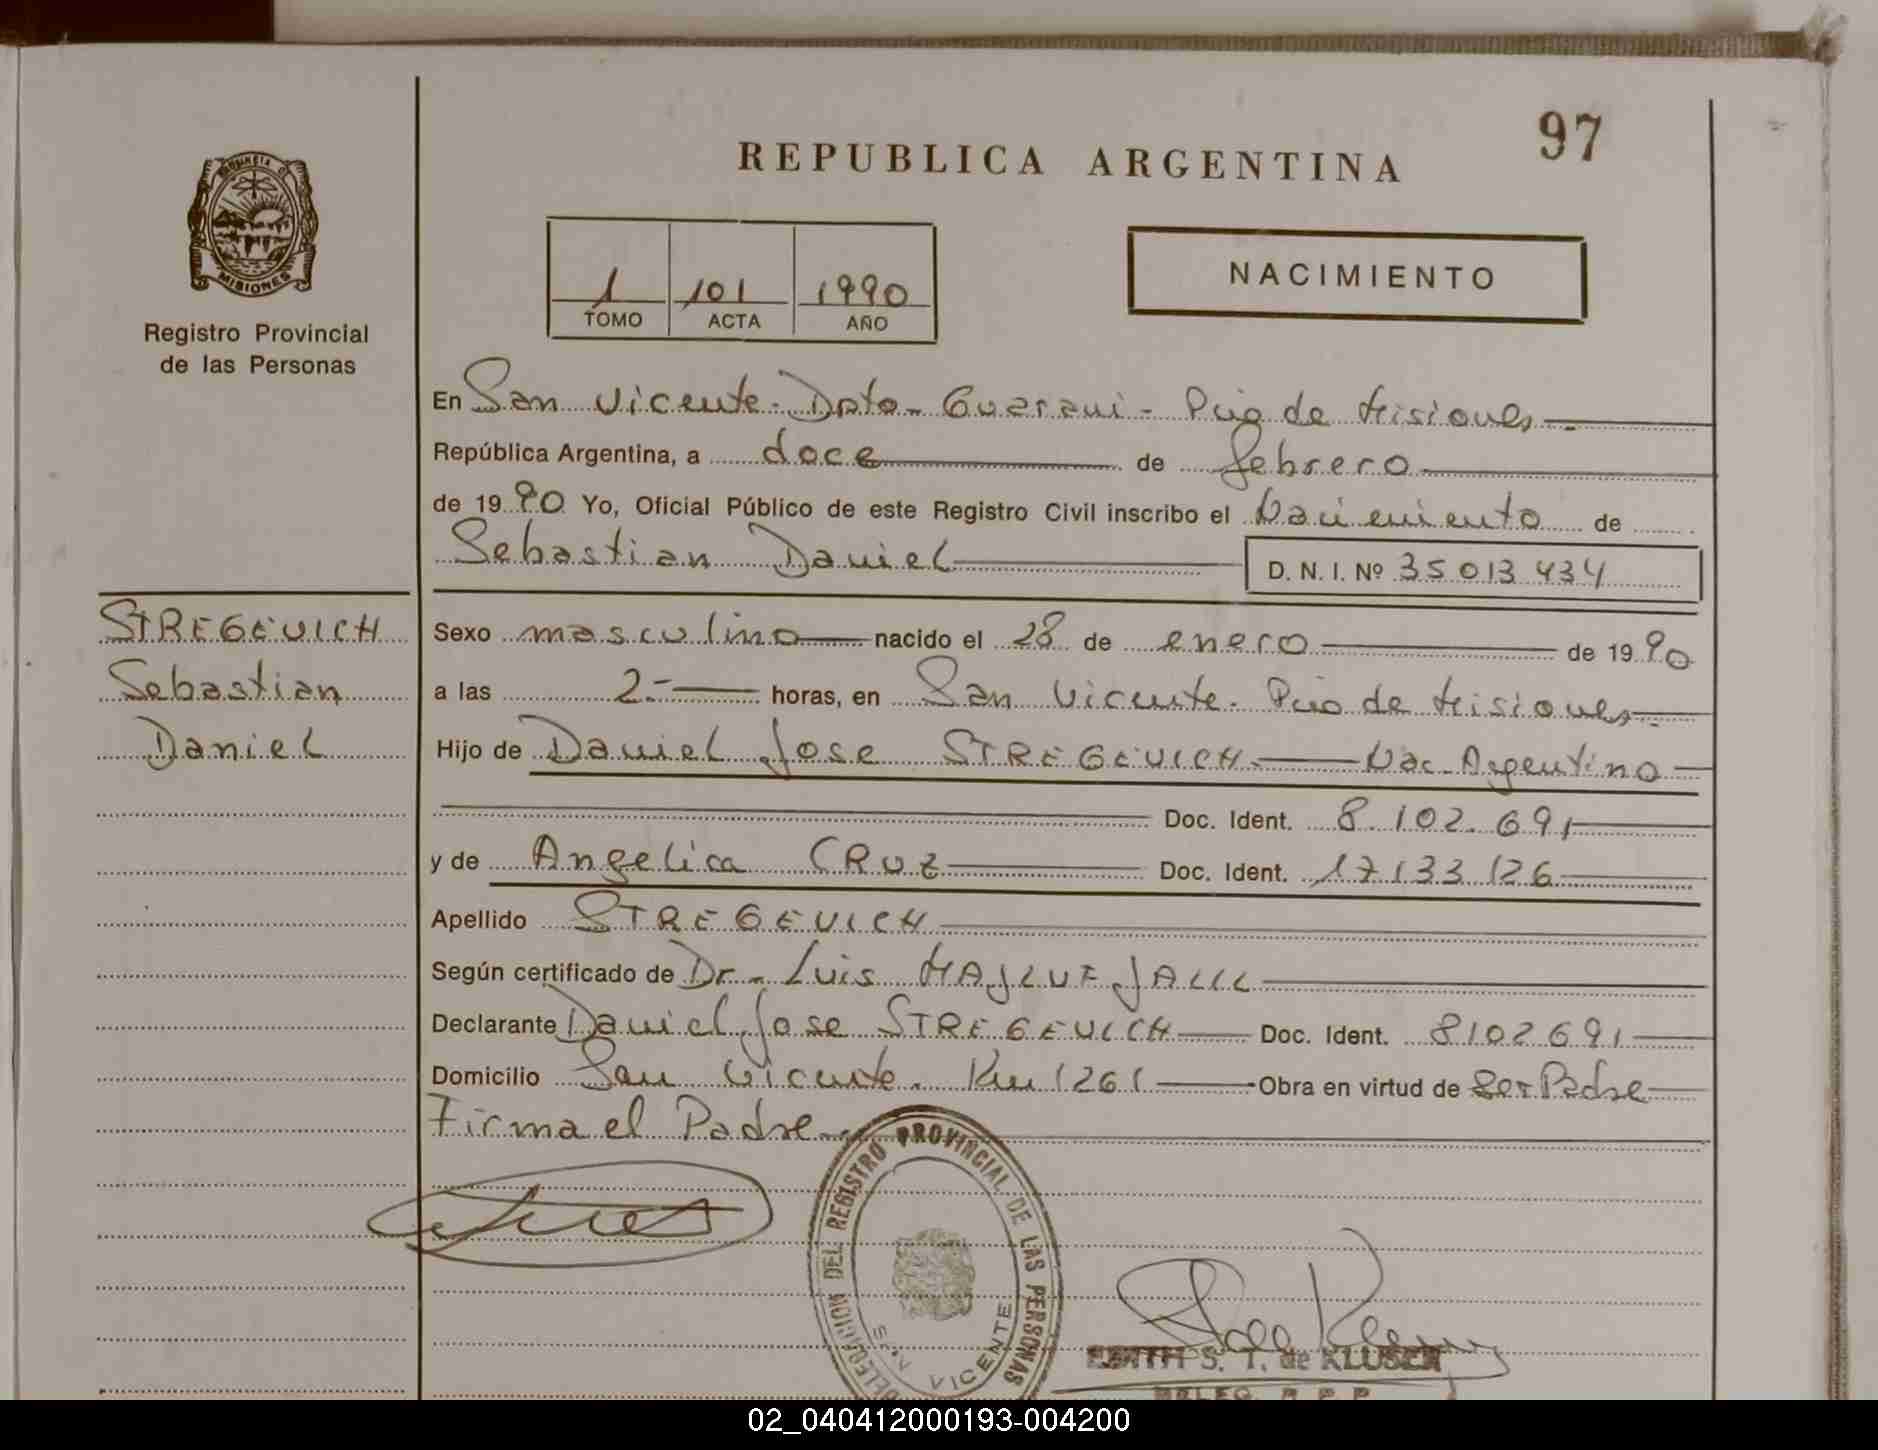 97
REPUBLICA ARGENTINA
PROVINCIA DE
MISIONES
Registro Provincial
de las Personas
1 101 1990
TOMO ACTA AÑO
NACIMIENTO
En San Vicente - Dpto - Guarani - Pcia de Misiones
República Argentina, a doce de febrero
de 1990 Yo, Oficial Público de este Registro Civil inscribo el Nacimiento de
Sebastian Daniel D. N. I. Nº 35 013 434
STREGEVICH
Sebastian
Daniel
Sexo masculino nacido el 28 de enero de 1990
a las 2.- horas, en San Vicente - Pcia de Misiones
Hijo de Daniel Jose STREGEVICH - Nac. Argentino
Doc. Ident. 8.102.691
y de Angelica CRUZ Doc. Ident. 17 133 126
Apellido STREGEVICH
Según certificado de Dr. Luis MAJLUF JALIL
Declarante Daniel Jose STREGEVICH Doc. Ident. 8102691
Domicilio San Vicente. Km 1261 Obra en virtud de Ser Padre
Firma el Padre
DELEGACION DEL REGISTRO PROVINCIAL DE LAS PERSONAS
VICENTE
EDITH S. T. de KLUSER
DELEG. R P P
02_040412000193-004200